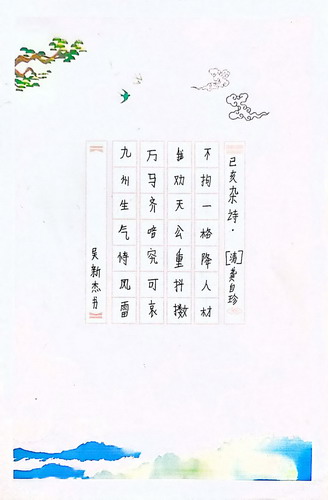 己亥杂诗·[清]龚自珍
九州生气恃风雷
万马齐喑究可哀
我劝天公重抖擞
不拘一格降人材
吴新杰书